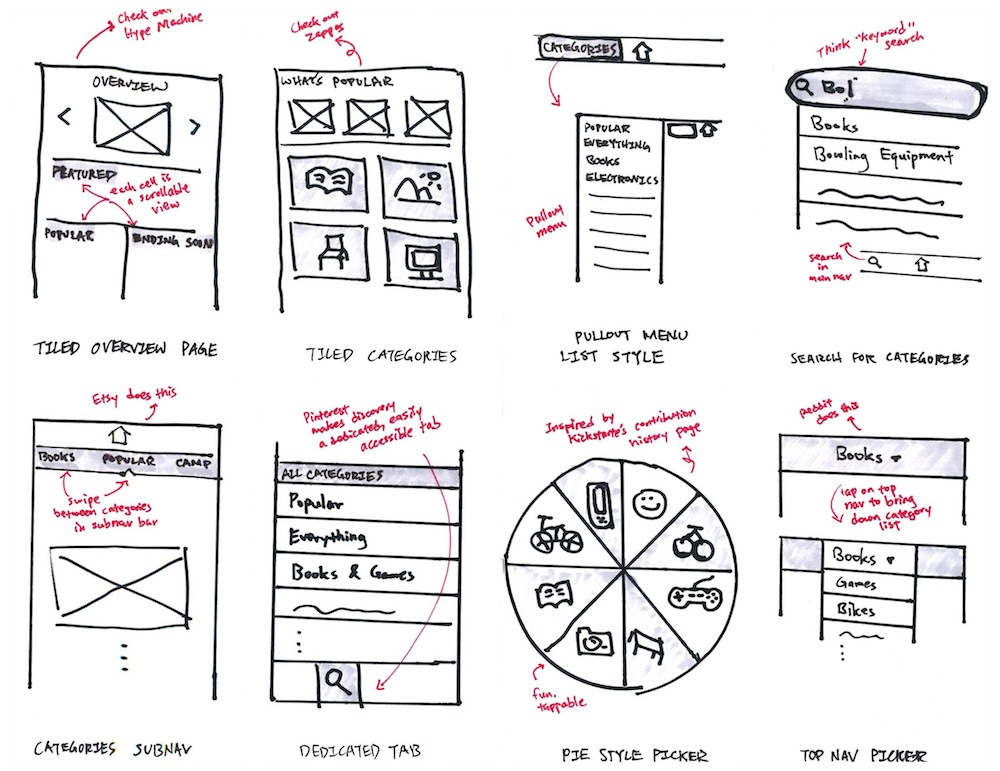 Check out
Hype Machine
OVERVIEW
<
>
FEATURED
each cell is
a scrollable
view
POPULAR
ENDING SOON
TILED OVERVIEW PAGE
Check out
Zappos
WHATS POPULAR
TILED CATEGORIES
CATEGORIES
POPULAR
EVERYTHING
BOOKS
ELECTRONICS
Pullout
menu
PULLOUT MENU
LIST STYLE
Think "keyword"
search
Bol
Books
Bowling Equipment
search
in
main nav
SEARCH FOR CATEGORIES
Etsy does this
BOOKS POPULAR CAMP
swipe
between categories
in subnav bar
CATEGORIES SUBNAV
Pinterest
makes discovery
a dedicated, easily
accessible tab
ALL CATEGORIES
Popular
Everything
Books & Games
DEDICATED TAB
Inspired by
Kickstarter's contribution
history page
fun,
tappable
PIE STYLE PICKER
Reddit
does this
Books
tap on top
nav to bring
down category
list
Books
Games
Bikes
TOP NAV PICKER